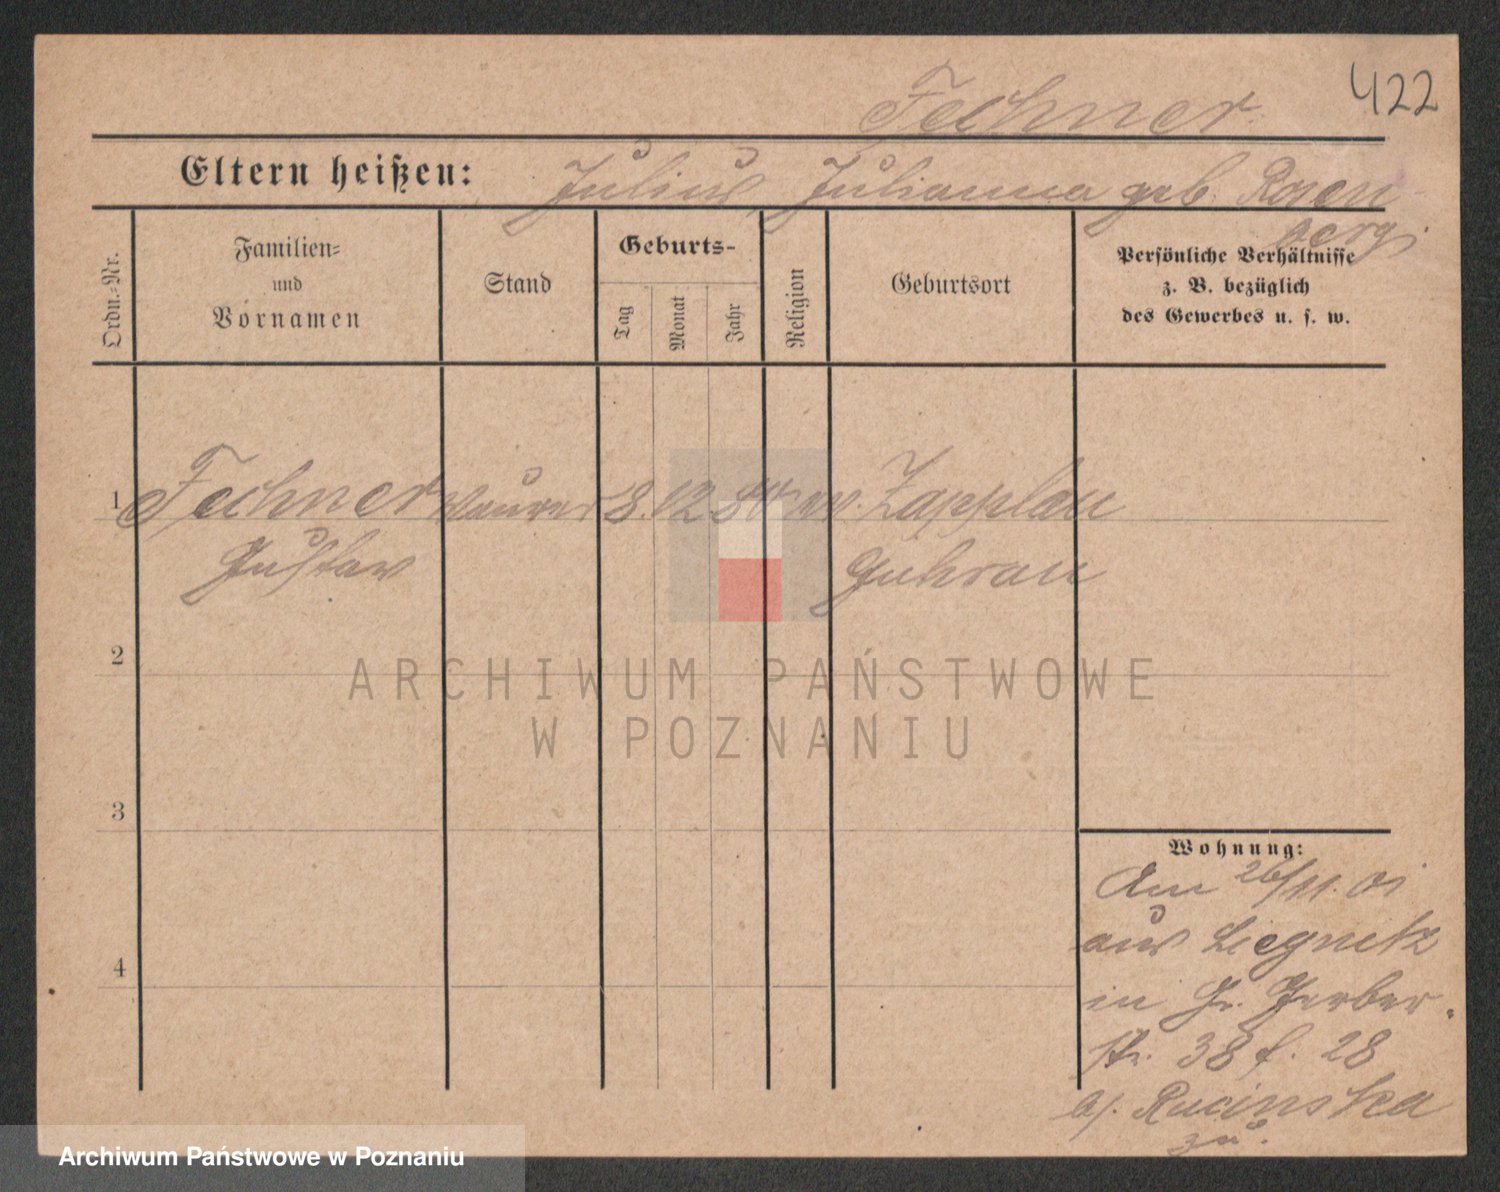 422
Fechner
Eltern heißen: Julius, Julianna geb. Rosen-
berg.
Ordn.-Nr.
Familien-
und
Vornamen
Stand
Geburts-
Tag
Monat
Jahr
Religion
Geburtsort
Persönliche Verhältnisse
z. B. bezüglich
des Gewerbes u. s. w.
1 Fechner Maurer 8. 12 ev. Zapplau
Gustav Guhrau
2
ARCHIWUM PAŃSTWOWE
W POZNANIU
3
4
Wohnung:
Am 26/11. 01
aus Liegnitz
in Gr. Gerber-
str. 38 f. 28
b/. Rucinska
zu.
Archiwum Państwowe w Poznaniu